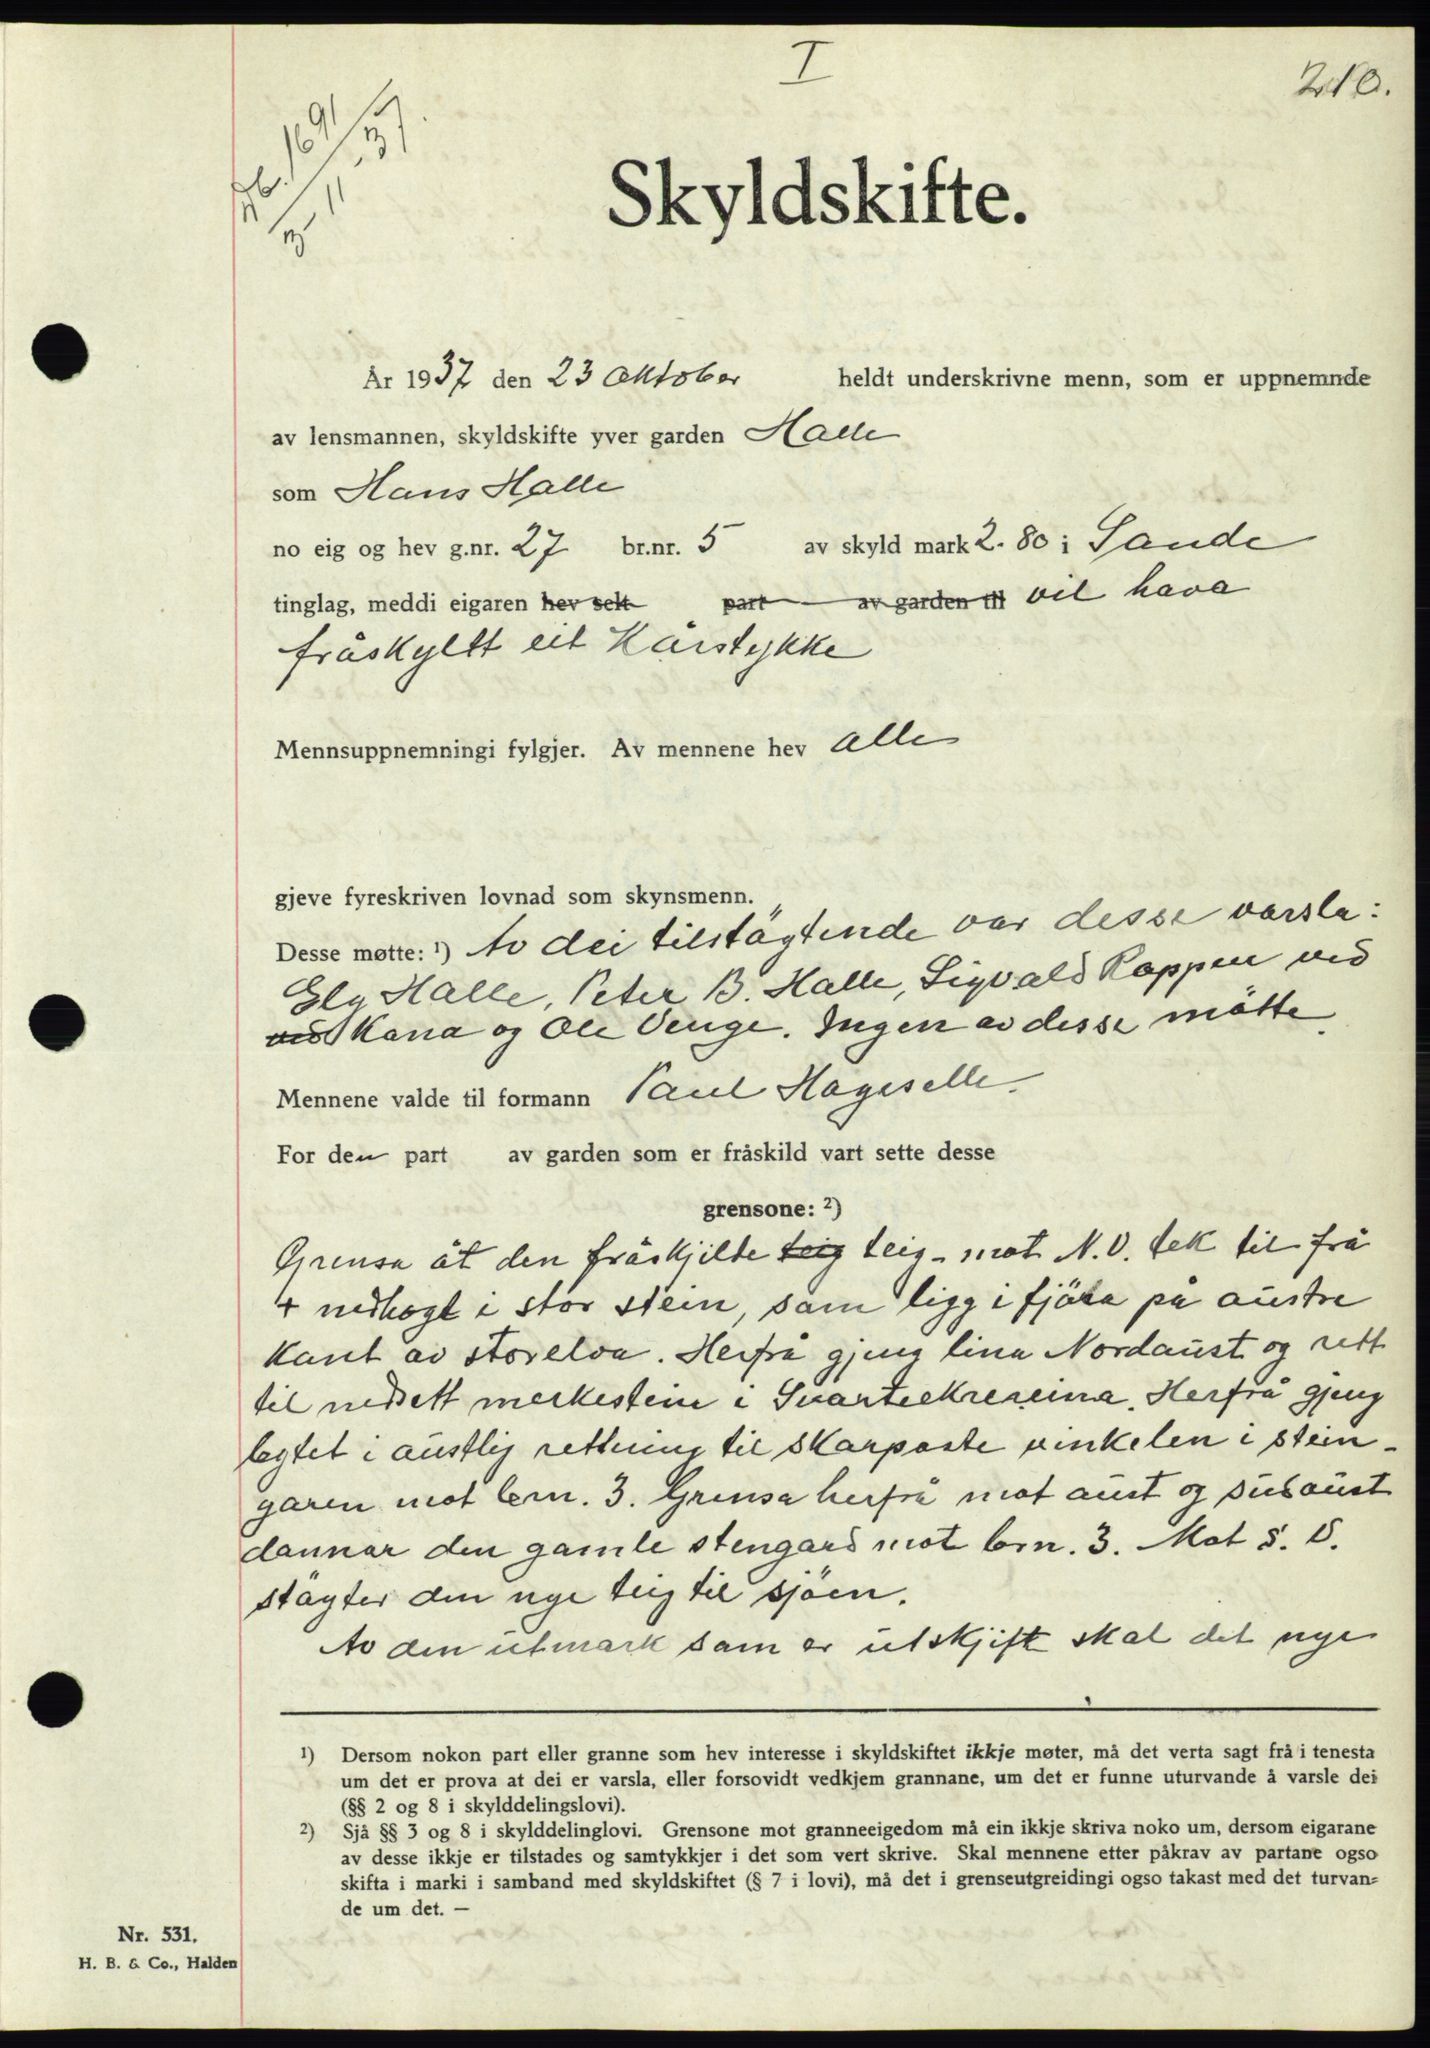 I
210.
1691/37
3/11
Skyldskifte.
År 1937 den 23 Oktober heldt underskrivne menn, som er uppnemnde
av lensmannen, skyldskifte yver garden Halle
som Hans Halle
no eig og hev g.nr. 27 br.nr. 5 av skyld mark 2.80 i Sande
tinglag, meddi eigaren hev selt part av garden til vil hava
fråskyllt eit Kårstykke
Mennsuppnemningi fylgjer. Av mennene hev alle
gjeve fyreskriven lovnad som skynsmenn.
Desse møtte: ¹) Av dei tilstøytende var desse varsla:
Ely Halle, Peter B. Halle, Sigvald Koppen ved
ved Kona og Ole Venge. Ingen av desse møtte.
Mennene valde til formann Paul Hageselle.
For den part av garden som er fråskild vart sette desse
grensone: ²)
Grensa åt den fråskjilde teig teig mot N.V. tek til frå
+ nedhogt i stor stein, som ligg i fjøra på austre
kant av storelva. Herfrå gjeng lina Nordaust og rett
til nedsett merkestein i . Herfrå gjeng
bytet i austlig rettning til skarpaste vinkelen i stein-
garen mot brn. 3. Grensa herfrå mot aust og sudaust
dannar den gamle stengard mot brn. 3. Mot S.V.
støyter den nye teig til sjøen.
Av den utmark som er utskjift skal det nye
¹) Dersom nokon part eller granne som hev interesse i skyldskiftet ikkje møter, må det verta sagt frå i tenesta
um det er prova at dei er varsla, eller forsovidt vedkjem grannane, um det er funne uturvande å varsle dei
(§§ 2 og 8 i skylddelingslovi).
²) Sjå §§ 3 og 8 i skylddelinglovi. Grensone mot granneeigedom må ein ikkje skriva noko um, dersom eigarane
av desse ikkje er tilstades og samtykkjer i det som vert skrive. Skal mennene etter påkrav av partane ogso
skifta i marki i samband med skyldskiftet (§ 7 i lovi), må det i grenseutgreidingi ogso takast med det turvan=
de um det. —
Nr. 531.
H. B. & Co., Halden